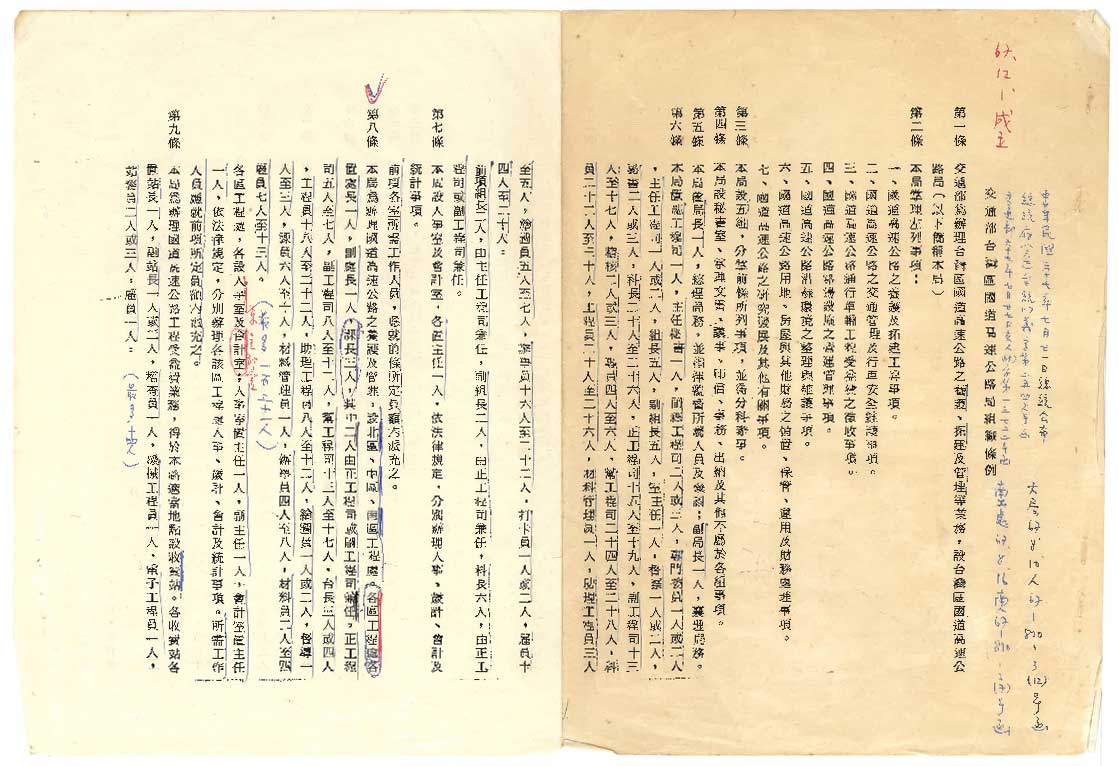 67.12.1成立
交通部台灣區國道高速公路局組織條例
第一條
交通部為辦理台灣區國道高速公路之養護、拓建及管理等業務,設台灣區國道高速公
路局(以下簡稱本局)
第二條
本局掌理左列事項:
一、國道高速公路之養護及拓建工程事項。
二、國道高速公路之交通管理及行車安全維護事項。
三、國道高速公路通行車輛工程受益費之徵收事項。
四、國道高速公路附設設施之營運管理事項。
五、國道高速公路沿線環境之整理與維護事項。
六、國道高速公路用地、房屋與其他財務之備置、保管、運用及財務處理事項。
七、國道高速公路之研究發展及其他有關事項。
第三條
本局設五組,分掌前條所列事項,並得分科辦事。
第四條
本局設秘書室,掌理文書、議事、印信、事務、出納及其他不屬於各組事項。
第五條
本局置局長一人,綜理局務,並指揮監督所屬人員及機關;副局長一人,襄理局務。
第六條
本局置總工程司一人,主任秘書一人,副總工程司二人或三人,專門委員一人或二人
,主任工程司一人或二人,組長五人,副組長五人,室主任一人,督察一人或二人,
秘書二人或三人,科長二十人至二十六人,正工程司十五人至十九人,副工程司十三
人至十七人,稽核二人或三人,專員四人至六人,幫工程司二十四人至二十八人,科
員二十二人至三十人,工程員二十人至二十六人,材料管理員一人,助理工程員三人
至五人,繪圖員五人至七人,辦事員十六人至二十二人,打卡員一人或二人,雇員十
四人至二十人。
前項組長二人,由主任工程司兼任,副組長二人,由正工程司兼任,科長六人,由正工
程司或副工程司兼任。
第七條
本局設人事室及會計室,各置主任一人,依法律規定,分別辦理人事、歲計、會計及
統計事項。
前項各室所需工作人員,應就前條所定員額內派充之。
第八條
本局為辦理國道高速公路之養護及管理,設北區、中區、南區工程處。各區工程處各
置處長一人,副處長一人,課長三人,其中二人由正工程司或副工程司兼任,正工程
司五人至七人,副工程司八人至十二人,幫工程司十三人至十七人,台長三人或四人
,工程員十八人至二十二人,助理工程員八人至十二人,繪圖員一人或二人,督導一
人至三人,課員六人至十人,材料管理員一人,辦事員四人至八人,材料員二人至四
人,雇員七人至十三人。(最多一百三十一人)
各區工程處,各設人事室及會計室;人事室置主任一人,副主任一人,會計室置主任
一人,依法律規定,分別辦理各該區工程處人事、歲計、會計及統計事項。所需工作
人員,應就前項所定員額內派充之。
第九條
本局為辦理國道高速公路工程受益費業務,得於本路適當地點設收費站。各收費站各
置站長一人,副站長一人或二人,稽查員一人,機械工程員一人,電子工程員一人,
站務員二人或三人,雇員一人。(最多十四人)